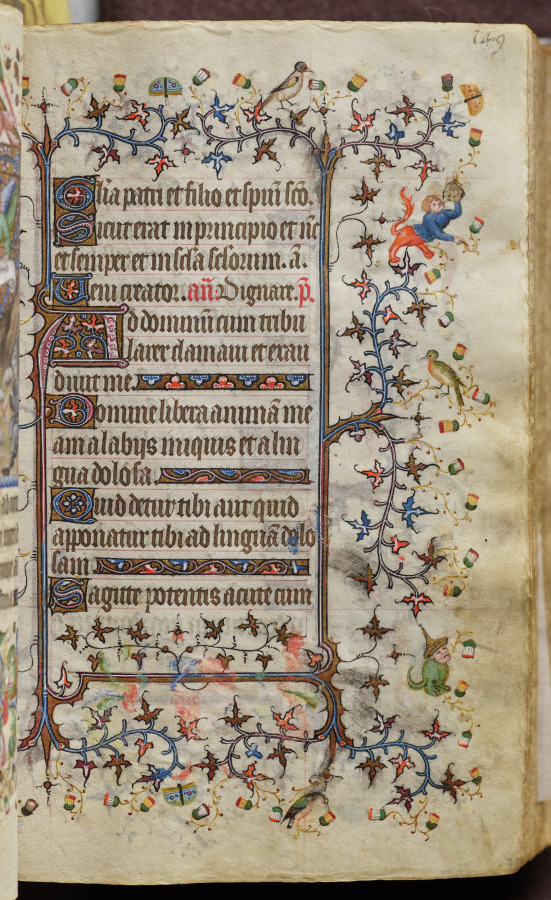 149
Glia patri et filio et spiriȋ sc̄o.
Sicut erat in principio et nc̄
et semper et in sc̄la sc̄lorum. a.
Veni creator. an̄. Dignare. p.
Ad dominū cum tribu
larer clamaui et exau
diuit me.
Domine libera animā me
am a labijs iniquis et a lin
gua dolosa.
Quid detur tibi aut quid
apponatur tibi ad linguā dolo
sam.
Sagitte potentis acute cum